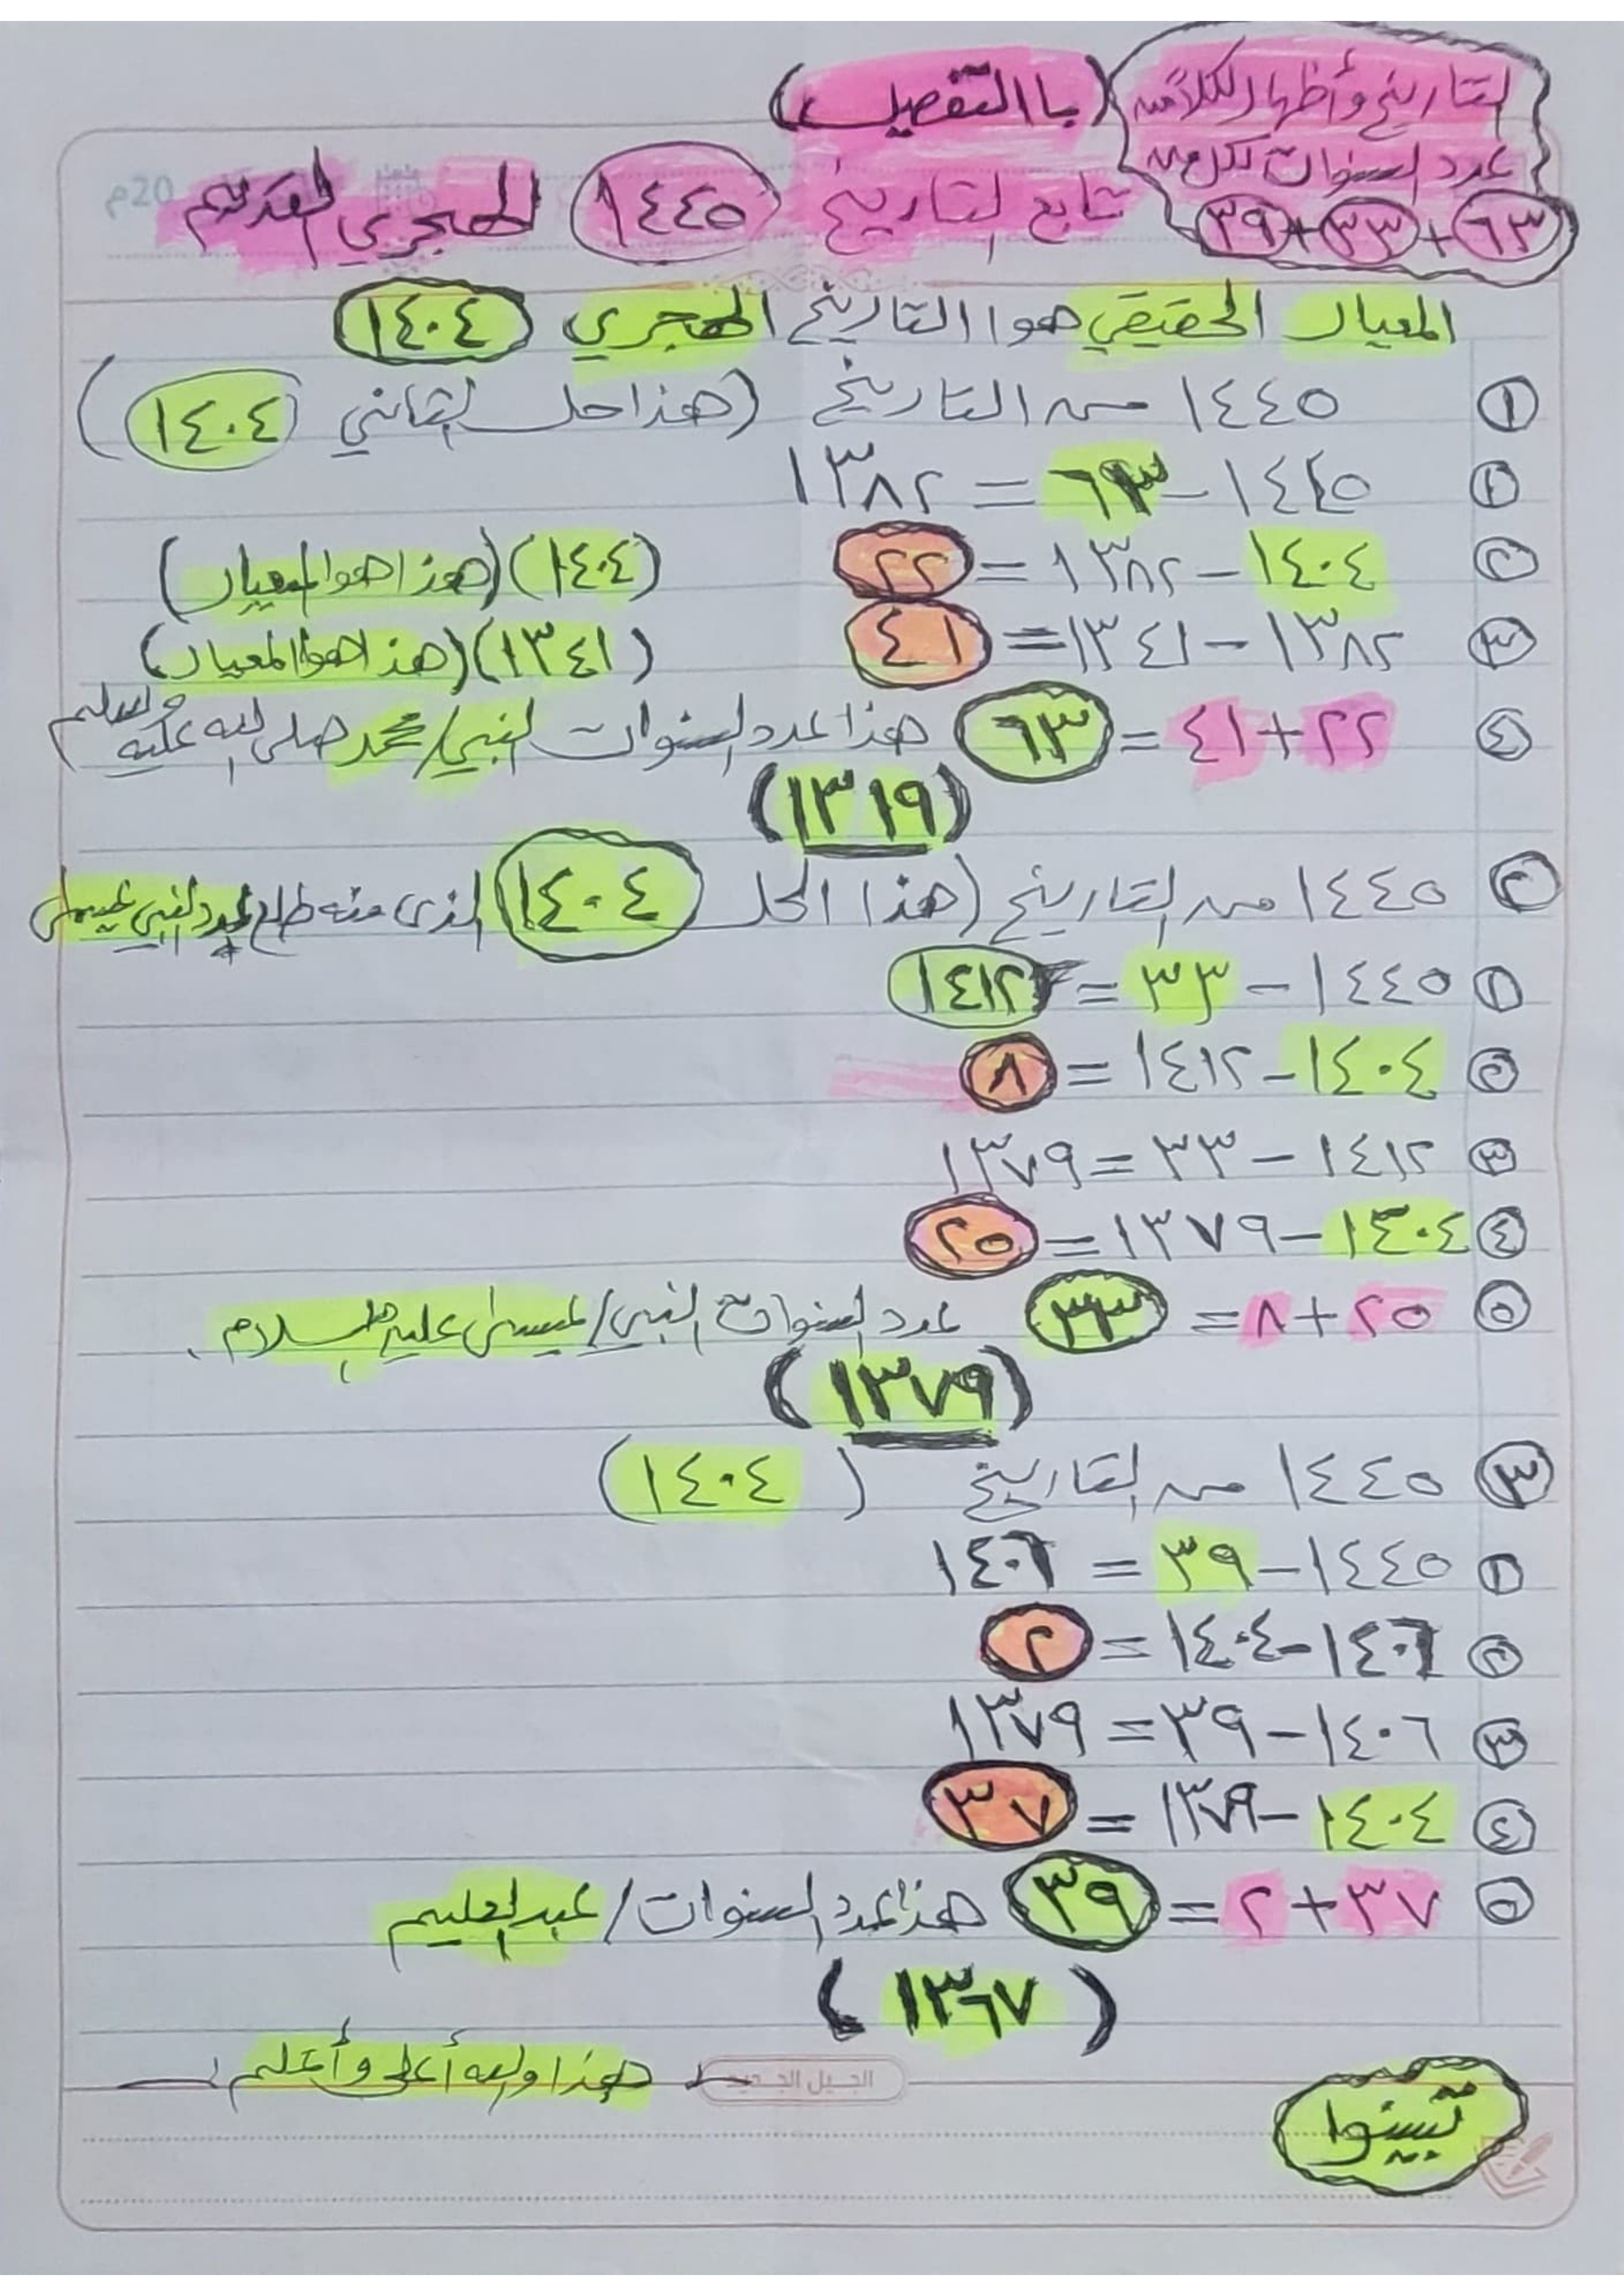 لتاريخ وأظهار لكلاً من
عدد السنوات لكل من
٦٣+٣٣+٣٩
(باالتفصيل)
تابع التاريخ ١٤٤٥ الهجري القديم
20م
المعيار الحقيقي هوا التاريخ الهجري ١٤٠٤
١ ١٤٤٥ من التاريخ (هذا حل الثاني ١٤٠٤)
١ ١٤٤٥-٦٣=١٣٨٢
٢ ١٤٠٤-١٣٨٢=٢٢ (١٤٠٤)(هذا هوا المعيار)
٣ ١٣٨٢-١٣٤١=٤١ (١٣٤١)(هذا هوا المعيار)
٤ ٢٢+٤١=٦٣ هذا عدد السنوات النبي/محمد صلى الله عليه وسلم
(١٣١٩)
٢ ١٤٤٥ من التاريخ (هذا الحل ١٤٠٤ الذي منه طلع عدد النبي عيسى
١ ١٤٤٥-٣٣=١٤١٢
٢ ١٤٠٤-١٤١٢=٨
٣ ١٤١٢-٣٣=١٣٧٩
٤ ١٤٠٤-١٣٧٩=٢٥
٥ ٢٥+٨=٣٣ عدد السنوات النبي/عيسى عليه السلام.
(١٣٧٩)
٣ ١٤٤٥ من التاريخ (١٤٠٤)
١ ١٤٤٥-٣٩=١٤٠٦
٢ ١٤٠٦-١٤٠٤=٢
٣ ١٤٠٦-٣٩=١٣٧٩
٤ ١٤٠٤-١٣٧٩=٣٧
٥ ٣٧+٢=٣٩ هذا عدد السنوات/عبدالعليم
(١٣٦٧)
هذا والله أعلى وأعلم
الجيل الجديد
تبينوا